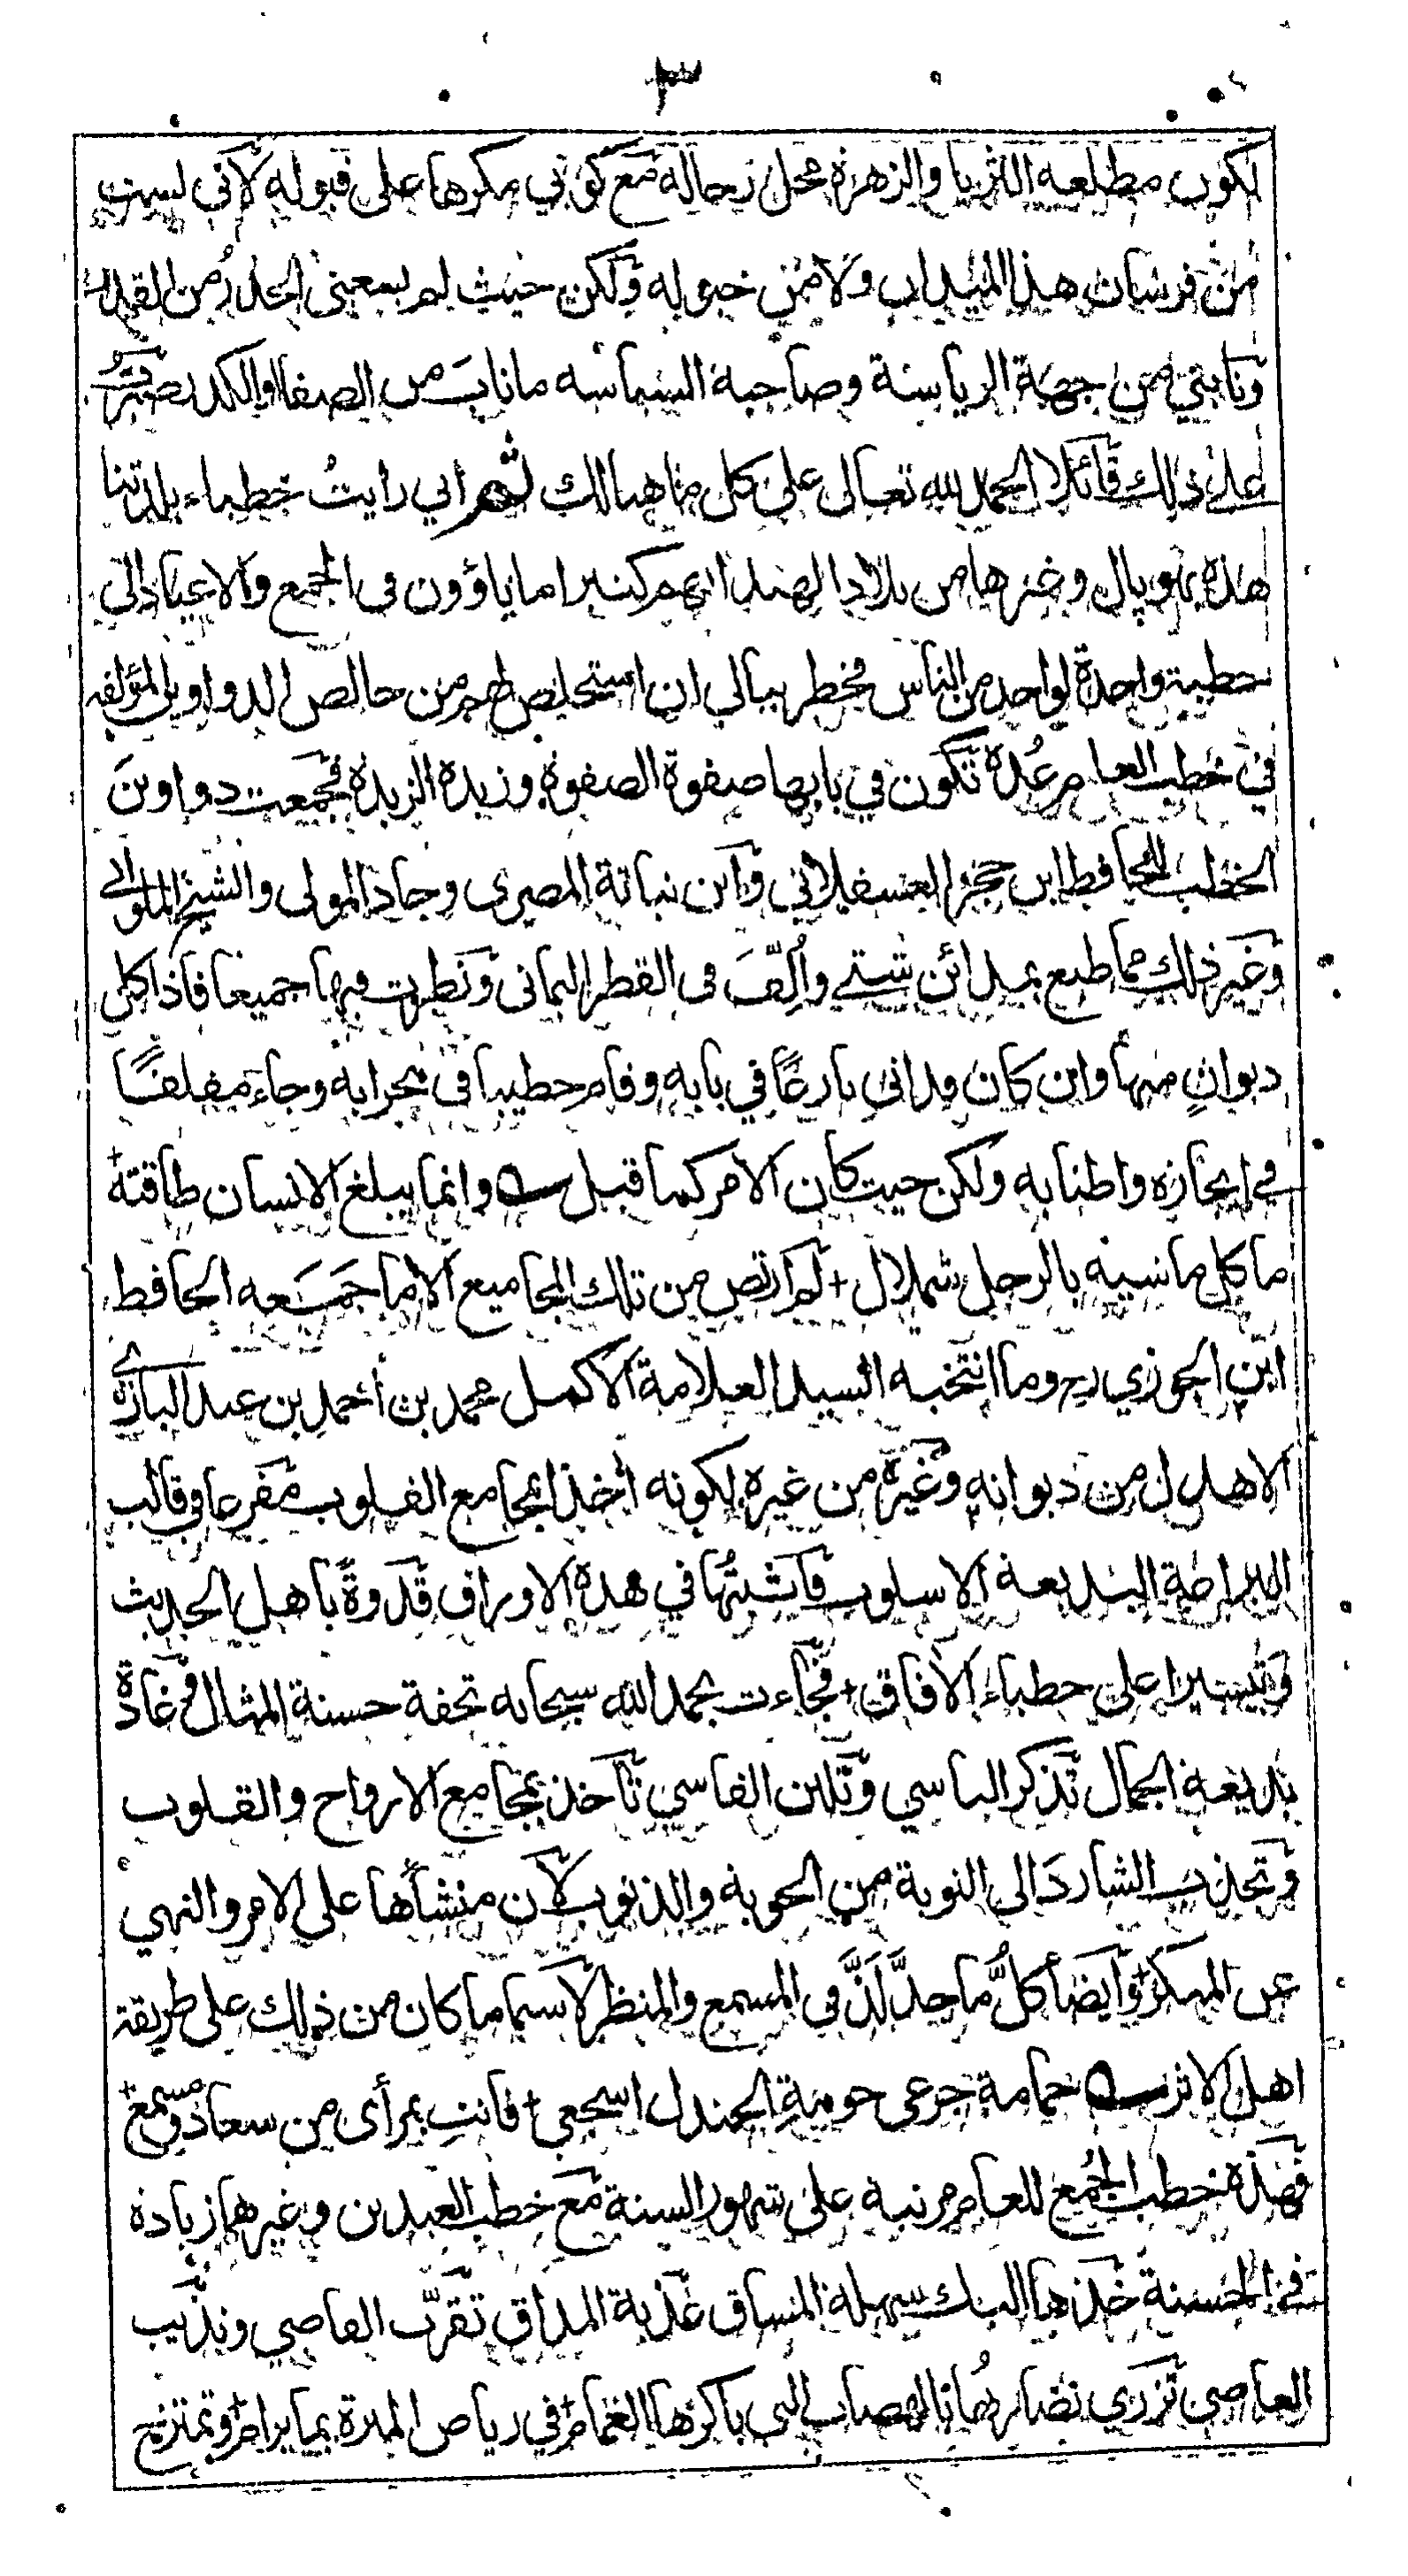 ٣
لكون مطلعه الثريا والزهرة محل رحاله مع كوني مكرها على قبوله لأني لست
من فرسان هذا الميدان ولا ممن خيوله ولكن حيث لم يسعني الحذر من القدر
ونابني من جهة الرياسة وصاحبة السياسه ما ناب من الصفا والكدر صبرت
على ذلك قائلا الحمد لله تعالى على كل ما هنالك ثم اني رايتُ خطباء بلدتنا
هذه بهوپال وغيرها من بلاد الهند انهم كثيرا ما ياؤون في الجمع والاعياد إلى
خطبة واحدة لواحد من الناس فخطر ببالي ان استخلص لهم من خالص الدواوين المؤلفه
في خطب العام عُدة تكون في بابها صفوة الصفوة وزبدة الزبدة فجمعت دواوين
الخطب للحافظ ابن حجر العسقلاني وابن نباتة المصرى وجاد المولى والشيخ الملوالي
وغير ذلك مما طبع بمدائن شتى وأُلِّفَ فى القطر اليمانى ونظرت فيها جميعا فاذا كل
ديوانٍ منها وان كان قد اتى بارعًا في بابه وقام خطيبا فى محرابه وجاء مفلقًا
في ايجازه واطنابه ولكن حيث كان الامر كما قيل وانما يبلغ الانسان طاقته +
ما كل ماشية بالرحل شملال + لم ارتض من تلك المجاميع الا ما جَمَعه الحافظ
ابن الجوزي رح وما انتخبه السيد العلامة الاكمل محمد بن أحمد بن عبد الباري
الاهدل من ديوانه وغيره من غيره لكونه أخذ بمجامع القلوب مفرغا في قالب
البلاغة البديعة الاسلوب فأثبتُها في هذه الاوراق قدوةً باهل الحديث
وتيسيرا على خطباء الآفاق + فجاءت بحمد الله سبحانه تحفة حسنة المثال وغادة
بديعة الجمال تذكر الناسي وتلين القاسي تأخذ بمجامع الارواح والقلوب
وتجذب الشاردَ الى التوبة من الحوبة والذنوب لأن منشأها على الامر والنهي
عن المنكر وأيضاً كلُّ ما حلَّ لَذَّ في المسمع والمنظر لا سيما ما كان من ذلك على طريقة
اهل الاثر حمامة جرعى حومةِ الجندل اسجعي + فانتِ بمرأى من سعاد ومسمع +
فهذه خطب الجُمع للعام مرتبة على شهور السنة مع خطب العيدين وغيرهما زيادة
في الحسنة خذها اليك سهلة المساق عذبة المذاق تقرّب القاصي وتذيب
العاصي تزري نضارتُها بالهضاب التي باكرها الغمام في رياض المبرة بما يرام وتمتزج